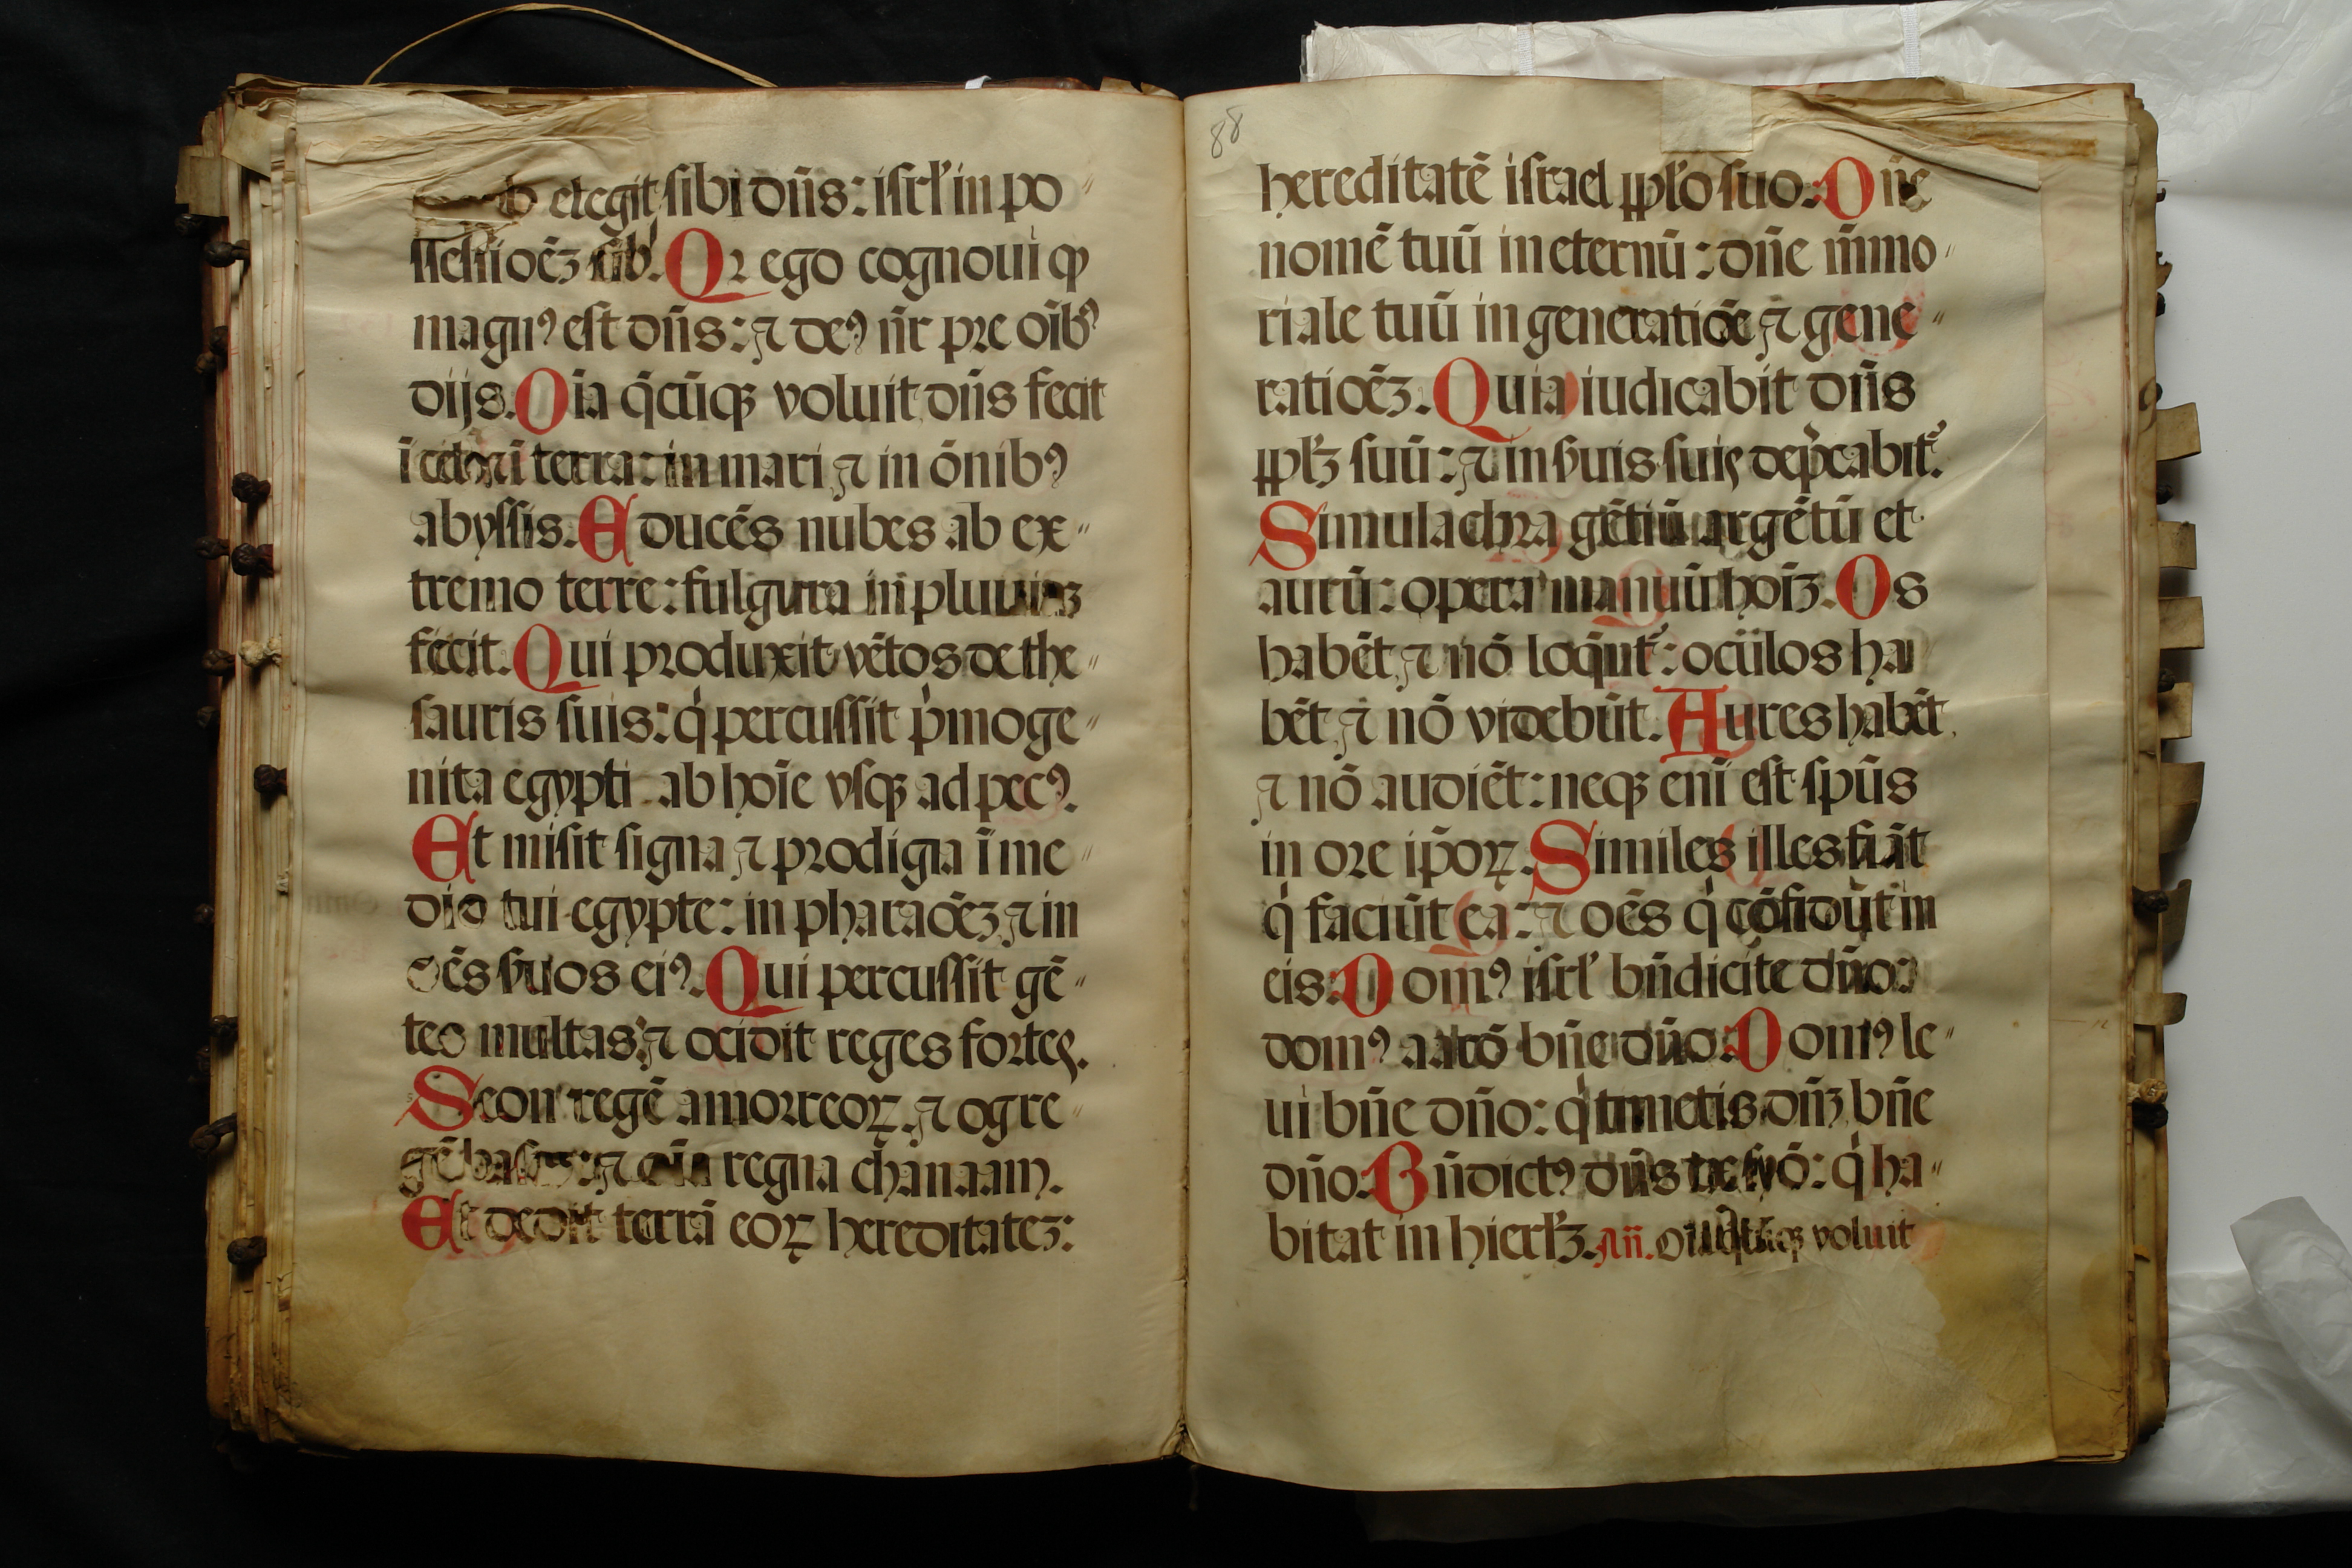 elegit sibi dn̄s: isrl̓ in po〃
ssessioēꝫ sib̓. Qꝛ ego cognoui ꝙ
magnꝰ est dn̄s: ⁊ deꝰ nr̄ pre oīb̓ꝰ
dijs. Oīa q̄cūqꝫ voluit dn̄s fecit
ī celo ⁊ ī terra: in mari ⁊ in ōnibꝰ
abyssis. Educēs nubes ab ex〃
tremo terre: fulgura in pluuiaꝫ
fecit. Qui produxit vētos de the〃
sauris suis: q̇ percussit p̓moge〃
nita egypti ab hoīe vsqꝫ ad pecꝰ.
Et misit signa ⁊ prodigia ī me〃
dio tui egypte: in pharaōeꝫ ⁊ in
oēs ẜuos eiꝰ. Qui percussit gē〃
tes multas: ⁊ ocidit reges fortes.
Seon regē amorreoꝝ. ⁊ og re〃
gē basan: ⁊ oīa regna chanaam.
Et dedit terrā eoꝝ hereditateꝫ:
88
hereditatē israel ꝑpl̓o suo. Dn̄e
nomē tuū in eternū: dn̄e m̄mo〃
riale tuū in generatiōe ⁊ gene〃
ratiōeꝫ. Quia iudicabit dn̄s
ꝑpl̓ꝫ suū: ⁊ in ẜuis suis dep̓cabit̓.
Simulachra gētiū argētū et
aurū: opera manuū hoīꝫ. Os
habēt ⁊ nō loq̄nt̓: oculos ha
bēt ⁊ nō videbūt. Aures habēt
⁊ nō audiēt: neqꝫ enī est spūs
in ore ip̄oꝝ. Similes illes fiāt
q̇ faciūt ea: ⁊ oēs q̇ cōfidūt in
eis. Domꝰ isrl̓ bn̄dicite dn̄o:
domꝰ aarō bn̄e dn̄o: Domꝰ le〃
ui bn̄e dn̄o: q̇ timetis dn̄ꝫ bn̄e
dn̄o. Bn̄dictꝰ dn̄s de syō: q̇ ha〃
bitat in hierl̓ꝫ. An̄. Oīa q̄cūqꝫ voluit